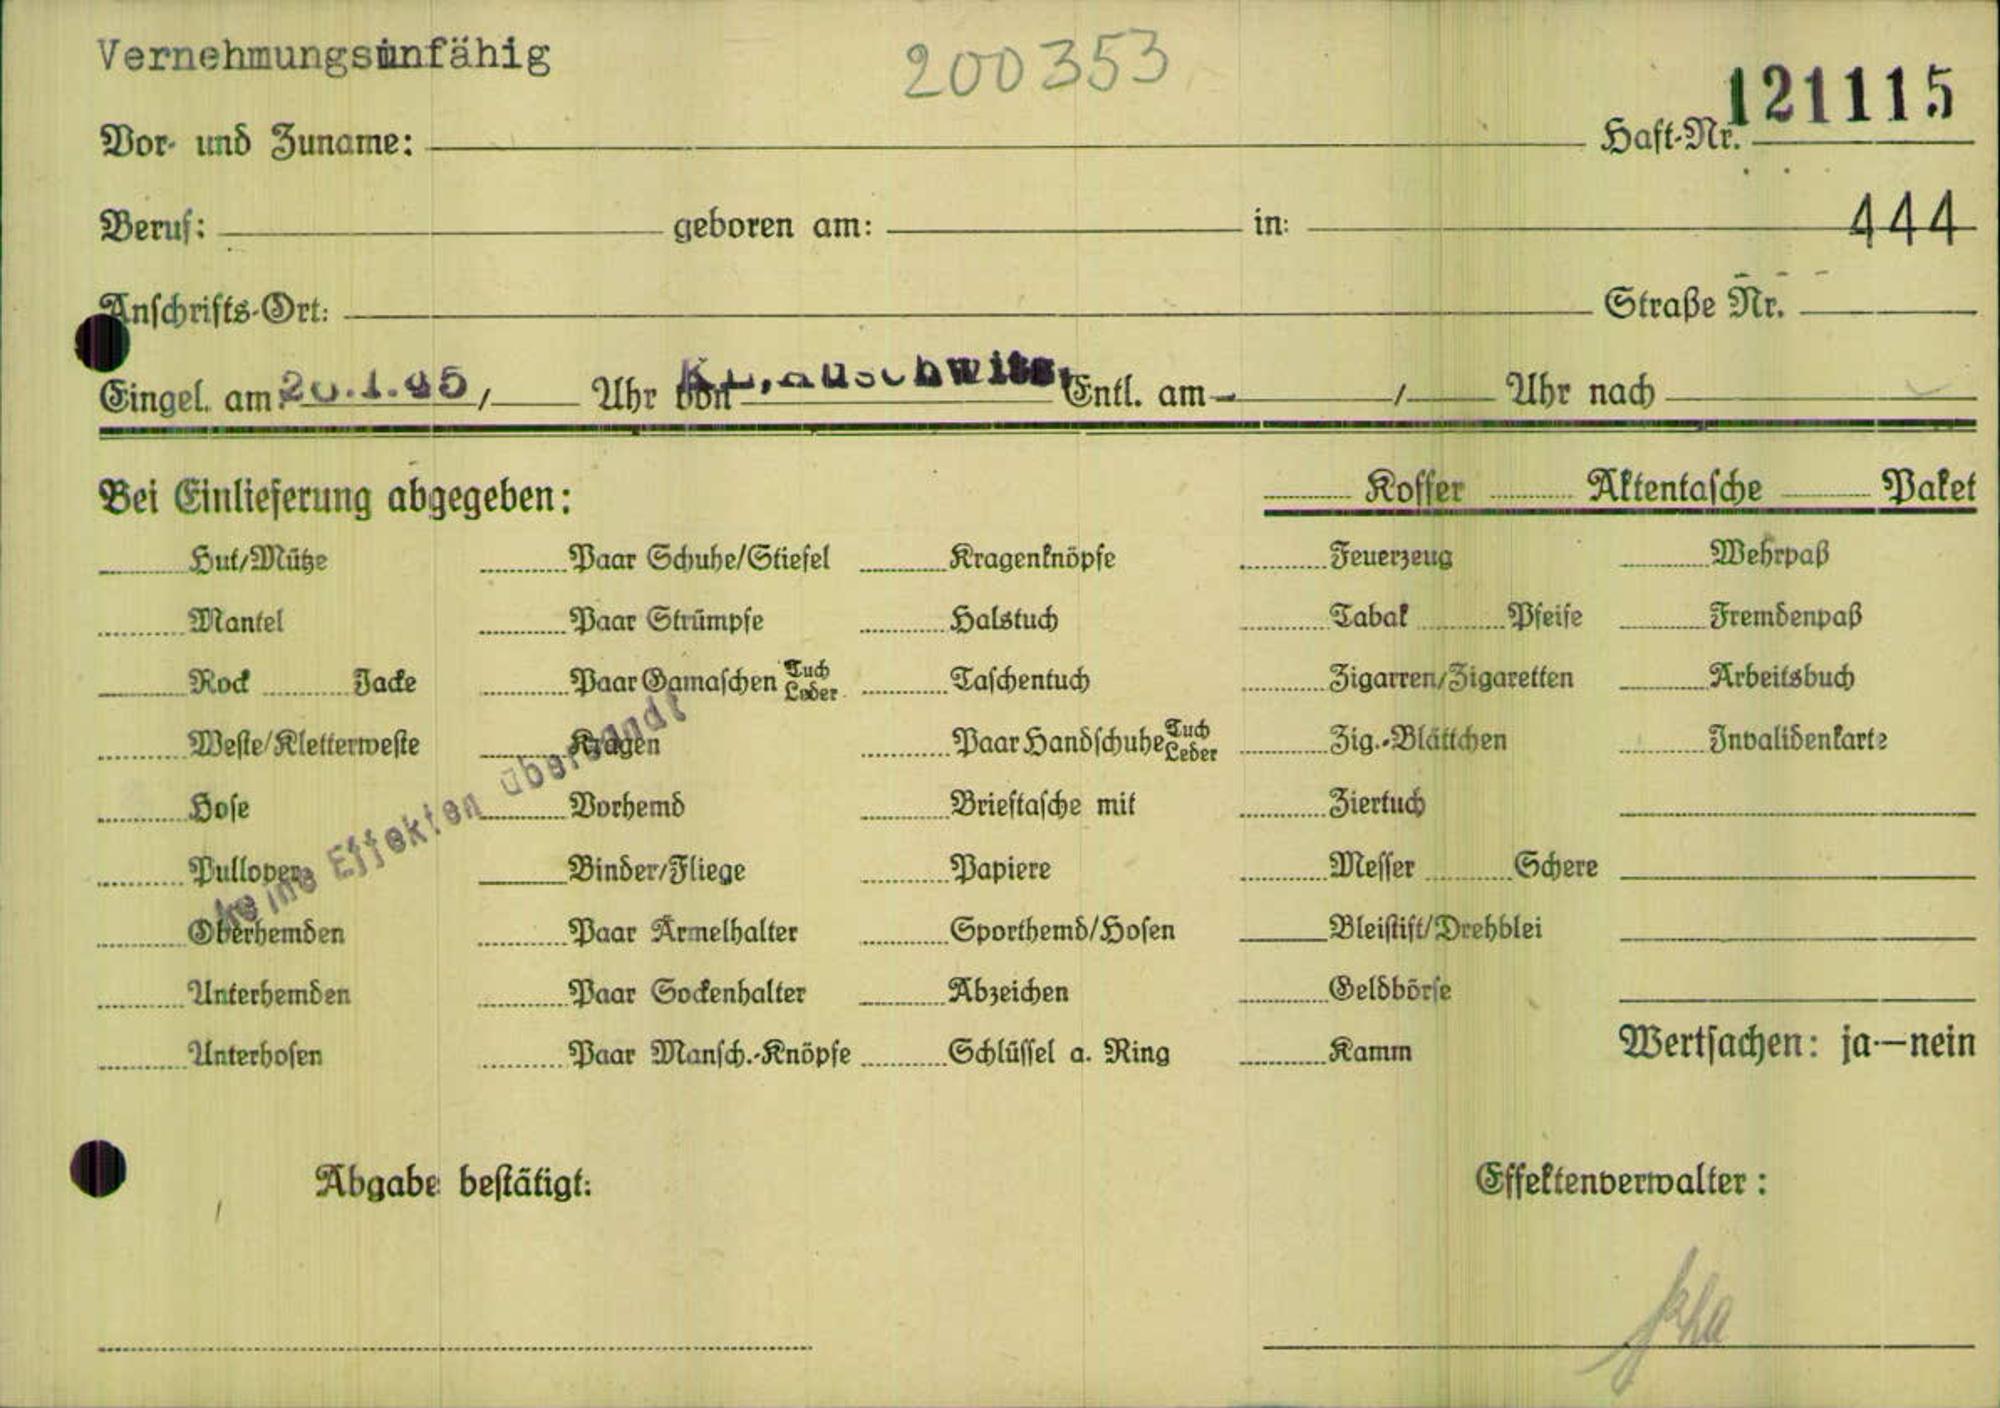 Vernehmungsunfähig
200353
121115
Vor- und Zuname: Haft-Nr.
Beruf: geboren am: in: 444
Anschrifts-Ort: Straße Nr.
Eingel. am 26.1.45 / Uhr von KL. Auschwitz. Entl. am / Uhr nach
Bei Einlieferung abgegeben: Koffer Aktentasche Paket
Hut/Mütze Paar Schuhe/Stiefel Kragenknöpfe Feuerzeug Wehrpaß
Mantel Paar Strümpfe Halstuch Tabak Pfeife Fremdenpaß
Rock Jacke Paar Gamaschen Tuch Leder Taschentuch Zigarren/Zigaretten Arbeitsbuch
Weste/Kletterweste Kragen Paar Handschuhe Tuch Leder Zig.-Blättchen Invalidenkarte
Hose Vorhemd Brieftasche mit Ziertuch
Pullover Binder/Fliege Papiere Messer Schere
Oberhemden Paar Ärmelhalter Sporthemd/Hosen Bleistift/Drehblei
Unterhemden Paar Sockenhalter Abzeichen Geldbörse
Unterhosen Paar Mansch.-Knöpfe Schlüssel a. Ring Kamm Wertsachen: ja—nein
keine Effekten übersandt
Abgabe bestätigt: Effektenverwalter: